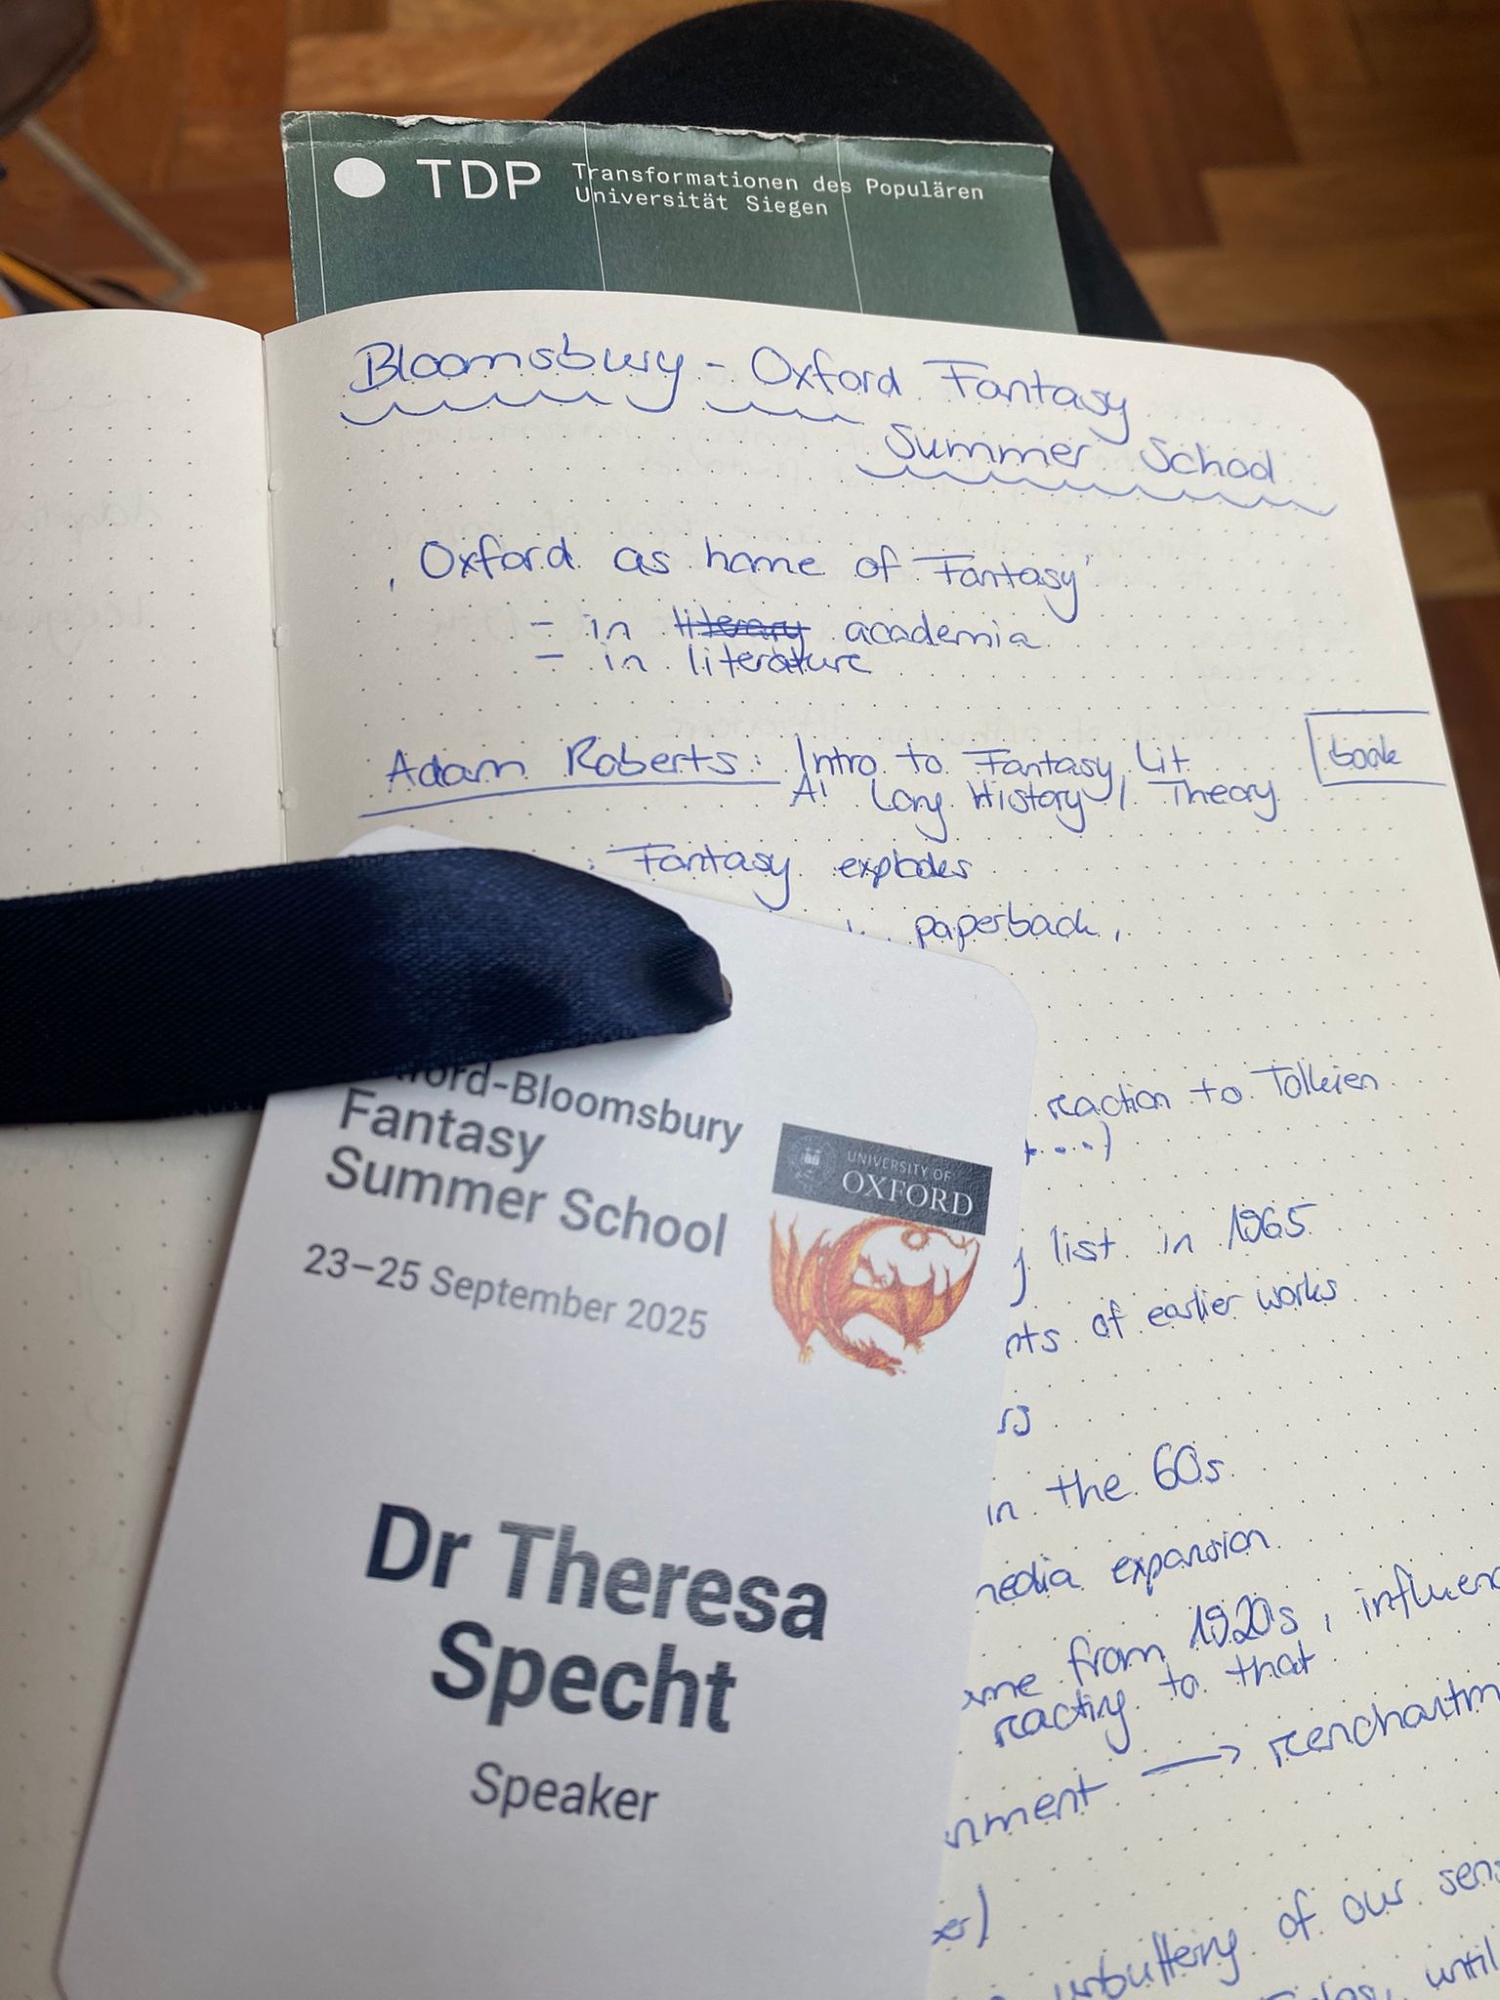 TDP
Transformationen des Populären
Universität Siegen
Bloomsbury - Oxford Fantasy
Summer School
‚Oxford as home of Fantasy'
- in literary academia
- in literature
Adam Roberts: Intro to Fantasy Lit
A Long History / Theory
book
Fantasy explodes
paperback,
reaction to Tolkien
list in 1965
of earlier works
in the 60s
media expansion
from 1920s, influenc
reacting to that
nment → reenchantm
of our sens
until
ford-Bloomsbury
Fantasy
Summer School
23–25 September 2025
UNIVERSITY OF
OXFORD
Dr Theresa
Specht
Speaker